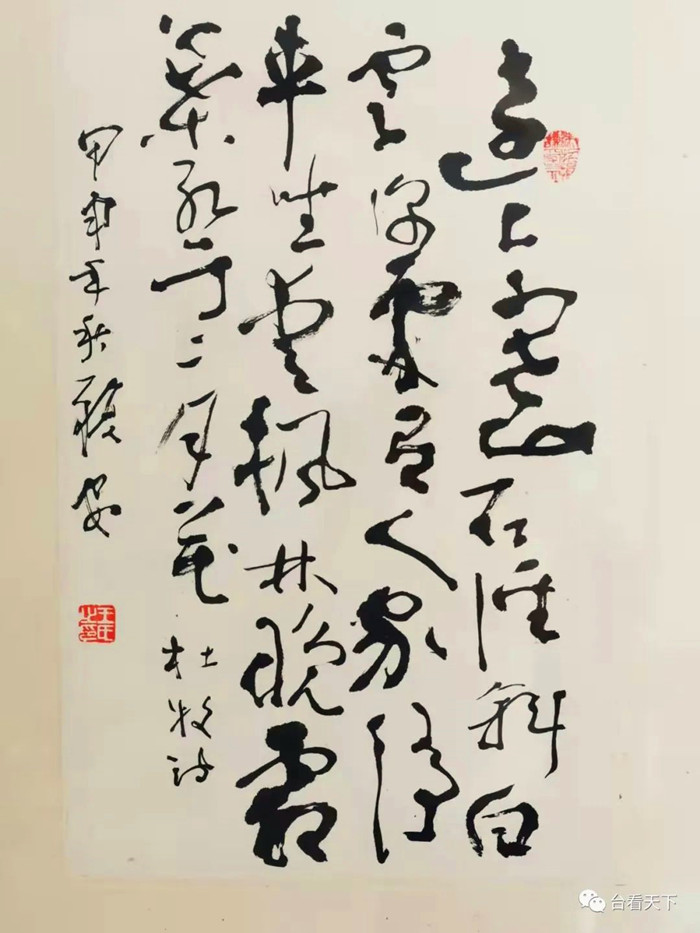 遠上寒山石徑斜白
雲深處有人家停
車坐愛楓林晚霜
葉紅于二月花 杜牧诗
甲申年秋
王氏之印
台看天下